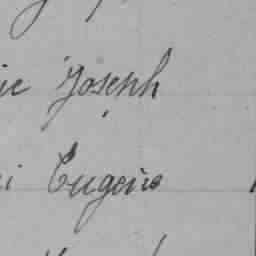 ie Joseph
i Eugène